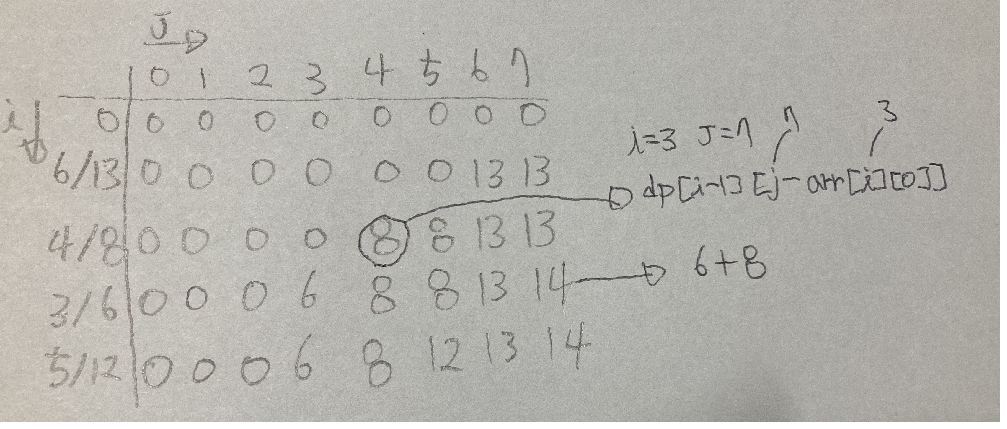 J
0 1 2 3 4 5 6 7
i 0 0 0 0 0 0 0 0 0
6/13 0 0 0 0 0 0 13 13
4/8 0 0 0 0 8 8 13 13
3/6 0 0 0 6 8 8 13 14
5/12 0 0 0 6 8 12 13 14
i=3 J=7 7 3
dp[i-1][j-arr[i][0]]
6+8